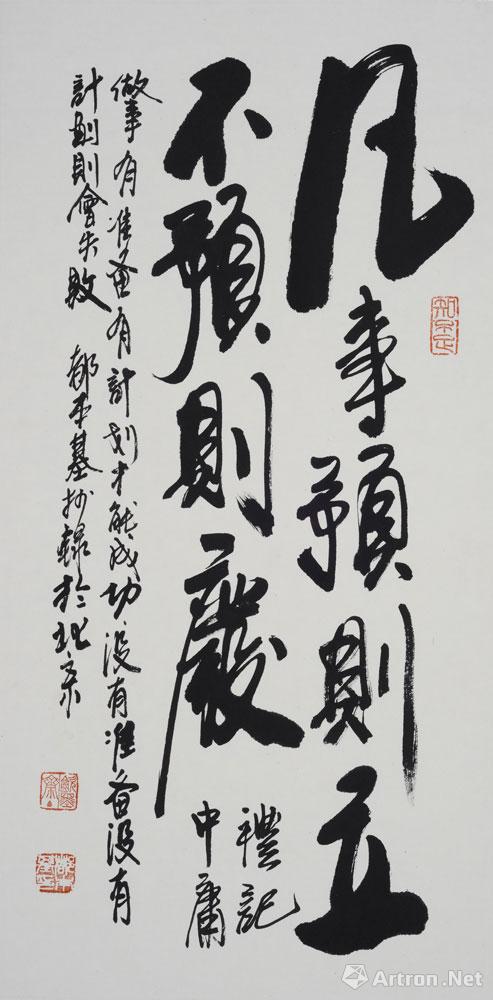 凡事預則立
不預則廢
禮記
中庸
做事有准备有計划才能成功、没有准备没有
計劃則會失敗 平基抄録於北京
知不足
Artron.Net